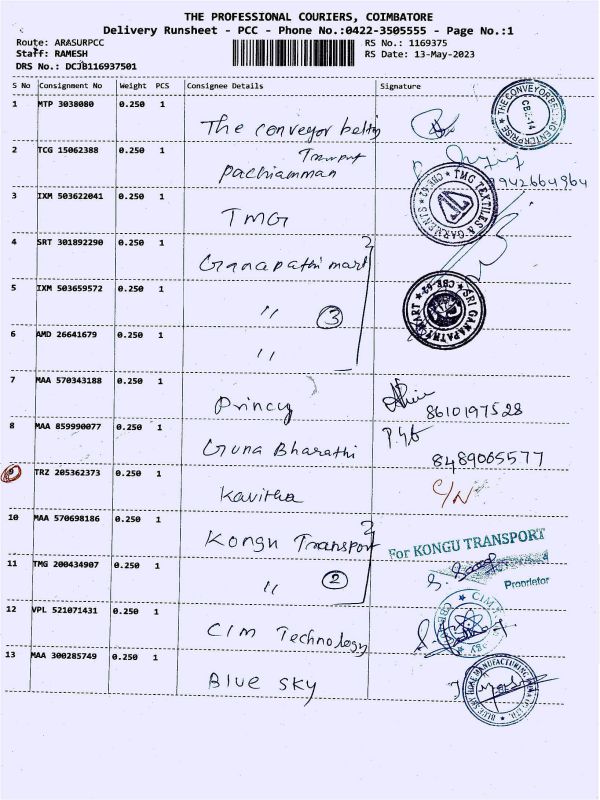 THE PROFESSIONAL COURIERS, COIMBATORE
Delivery Runsheet - PCC - Phone No.:0422-3505555 - Page No.:1
Route: ARASURPCC RS No.: 1169375
Staff: RAMESH RS Date: 13-May-2023
DRS No.: DCJB116937501
S No Consignment No Weight PCS Consignee Details Signature
1 MTP 3038080 0.250 1 The conveyor belting
THE CONVEYOR BELTING ENTERPRISE CBE-14
2 TCG 15062388 0.250 1 Pachiamman Transport
9942664964
3 IXM 503622041 0.250 1 TMG
TMG TEXTILES & GARMENTS CBE-62
4 SRT 301892290 0.250 1 Ganapathi mart
5 IXM 503659572 0.250 1 " 3
SRI GANAPATHY MART CBE-62
6 AMD 26641679 0.250 1 "
7 MAA 570343188 0.250 1 Princy
8610197528
8 MAA 859990077 0.250 1 Guna Bharathi
8489065577
9 TRZ 205362373 0.250 1 Kavitha C/N
10 MAA 570698186 0.250 1 Kongu Transport
For KONGU TRANSPORT
11 TMG 200434907 0.250 1 " 2
Proprietor
12 VPL 521071431 0.250 1 CIM Technology
13 MAA 300285749 0.250 1 Blue sky